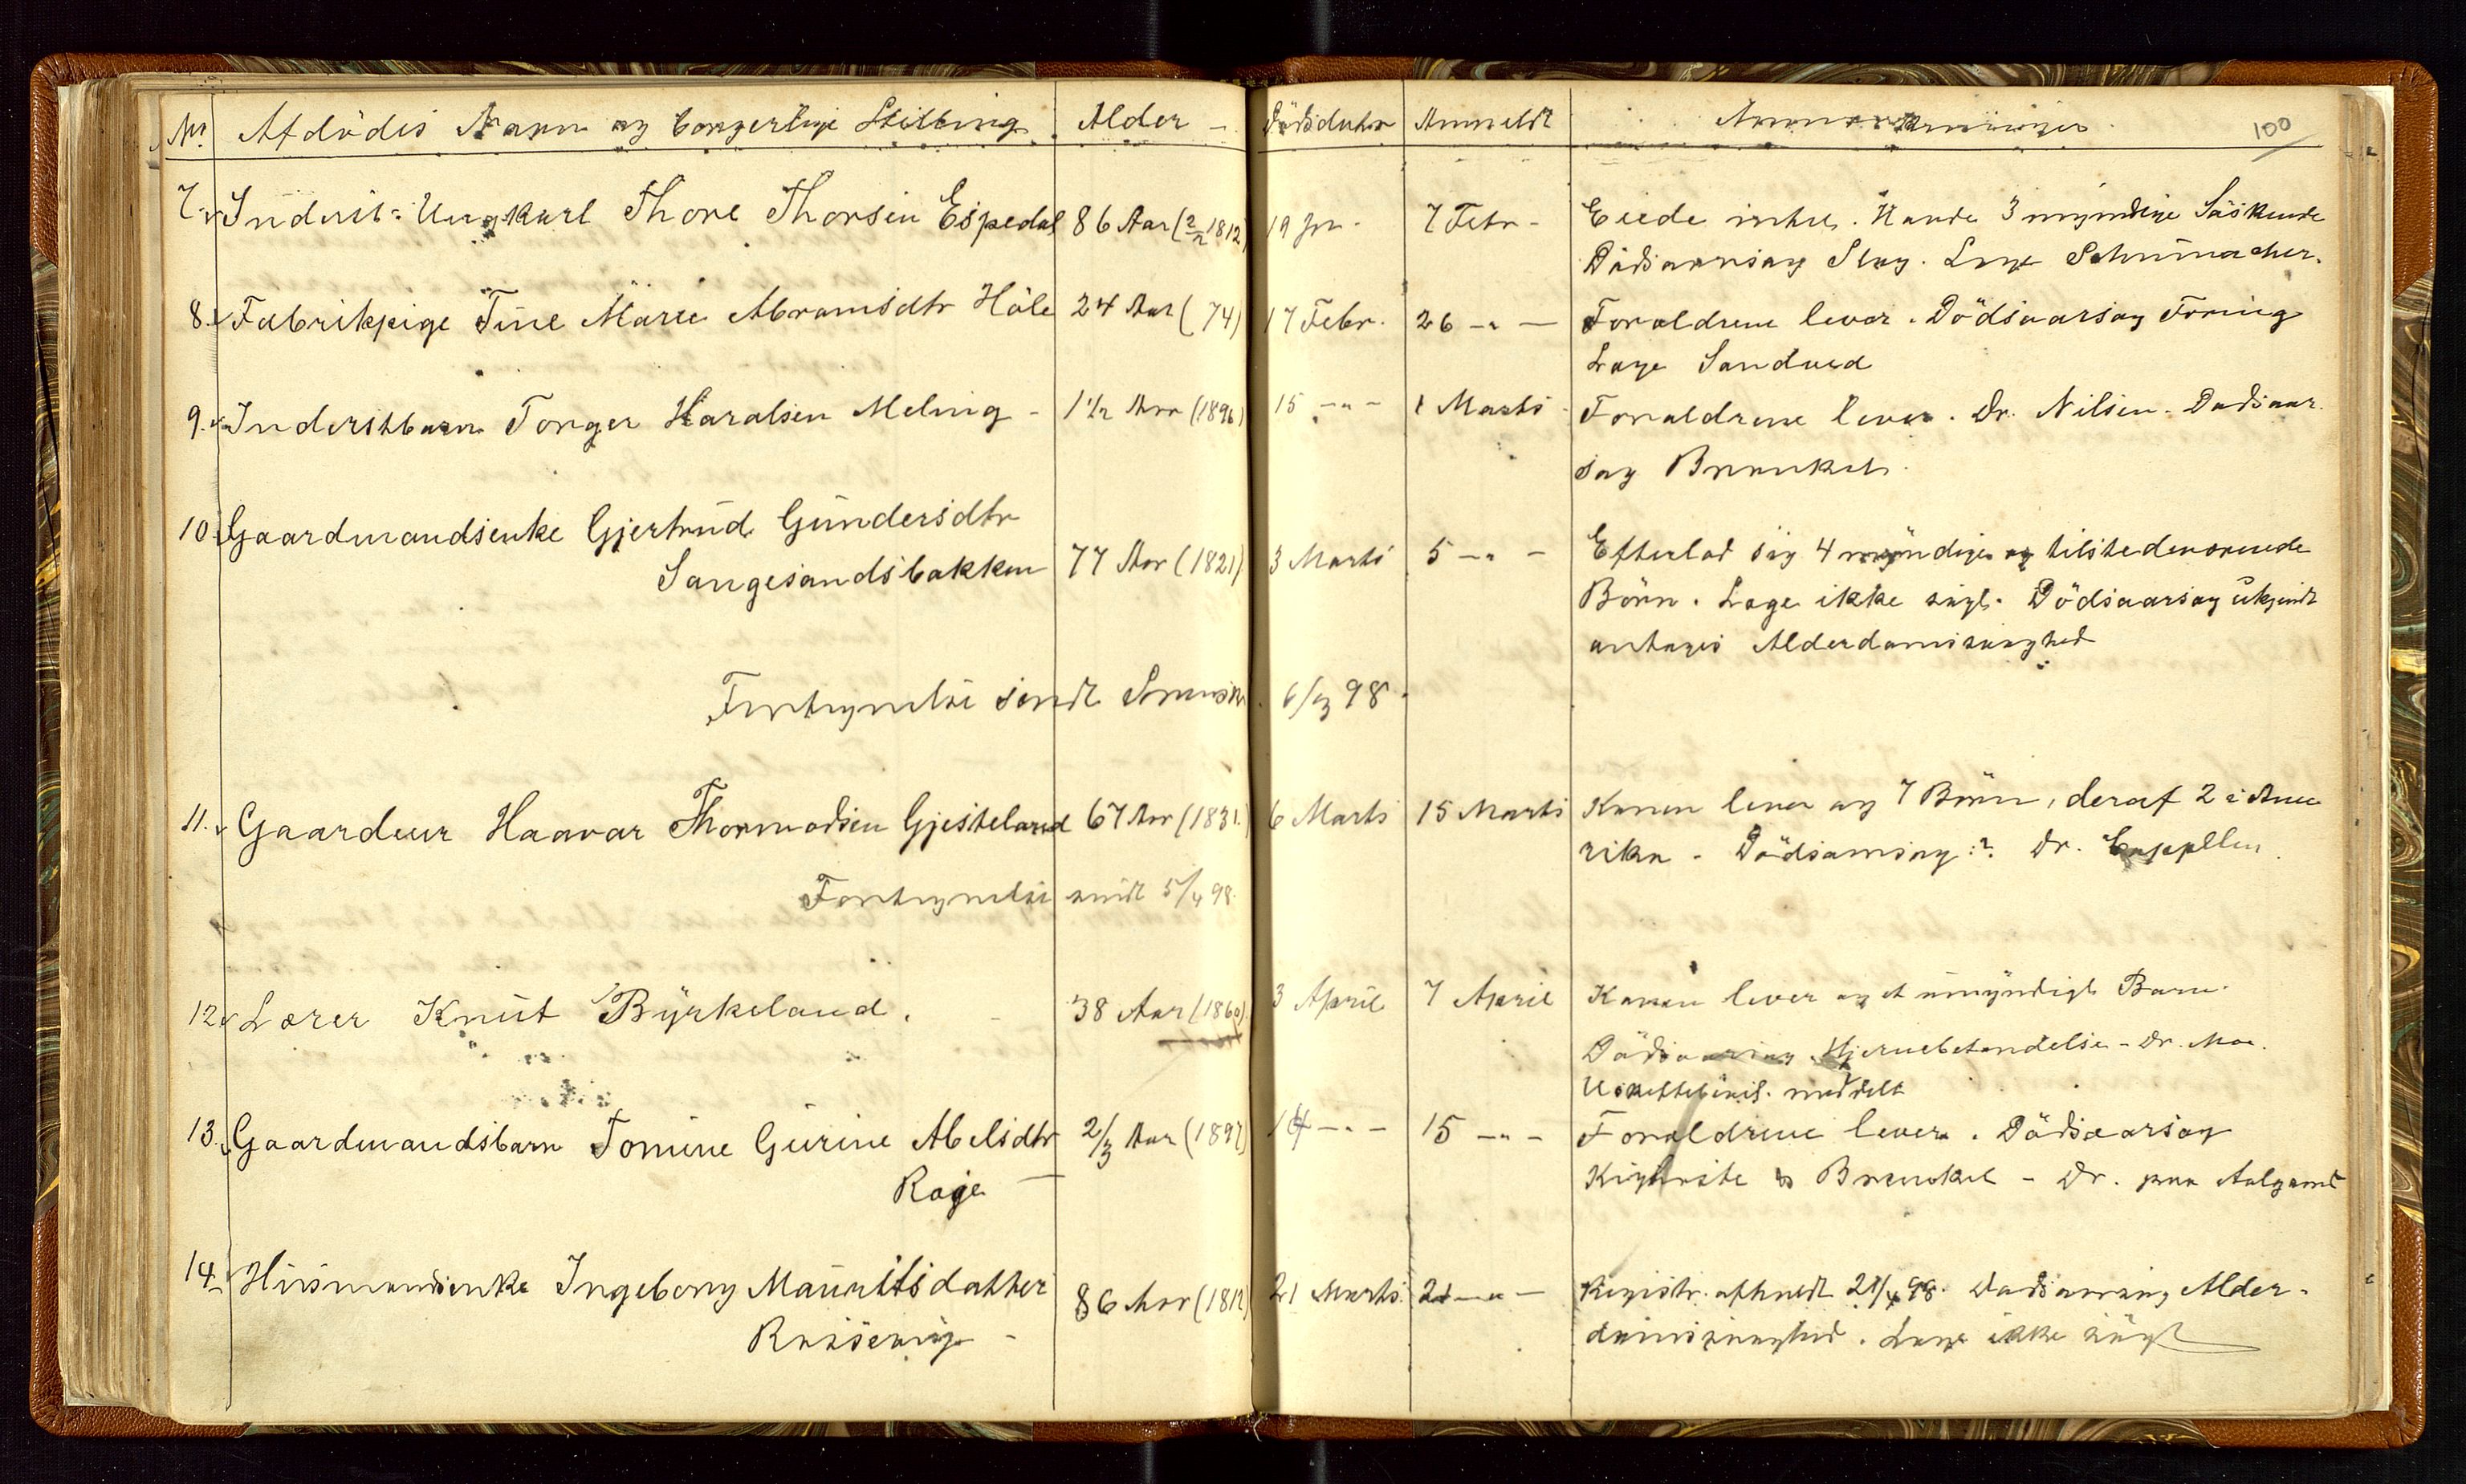 Nr. Afdødes Navn og borgerlige Stilling. Alder - Dødsdato Anmeldt Anmærkninger. 100
7. Inderst: Ungkarl Thore Thorsen Espedal 86 Aar (2/2 1812) 19 Jan. 7 Febr - Eiede intet. Havde 3 myndige Söskende
Dödsaarsag Slag. Læge Schumacher.
8. Fabrikpige Tine Marie Abramsdtr Höle 24 Aar (74) 17 Febr. 26 -"- Forældrene lever. Dödsaarsag Tæring
Læge Sandved
9. Inderstbarn Torger Haralsen Meling - 1 1/2 Aar (1896) 15 -"- 1 Marts Forældrene lever. Dr. Nilsen. Dødsaar-
sag Bronkit.
10. Gaardmandsenke Gjertrud Gundersdtr
Sangesandsbakken 77 Aar (1821) 3 Marts 5 -"- Efterlod sig 4 myndige og tilstedeværende
Börn. Læge ikke sögt. Dödsaarsag ukjendt
antages Alderdomssvaghed
Fortegnelse sendt 6/3 98.
11. Gaardmr Haavar Thormodsen Gjesteland 67 Aar (1831.) 6 Marts 15 Marts Konen lever og 7 Börn, deraf 2 i Ame
rika - Dödsaarsag:? Dr. Cappellen
Fortegnelse sendt 5/4 98.
12. Lærer Knut Byrkeland. - 38 Aar (1860) 3 April 7 April Konen lever og et umyndigt Barn.
Dödsaarsag Hjernebetændelse - Dr. Moe.
Uskiftebevil. meddelt
13. Gaardmandsbarn Tomine Gurine Abelsdtr
Rage - 2/3 Aar (1897) 14 -"- 15 -"- Forældrene lever. Dödsaarsag
Kighoste & Bronkit - Dr. paa Aalgaard
14. Husmandsenke Ingeborg Mauritsdatter
86 Aar (1812) 21 Marts. 21 -"- Registr. afholdt 21/4 98. Dødsaarsag Alder-
domssvaghed. Læge ikke sögt